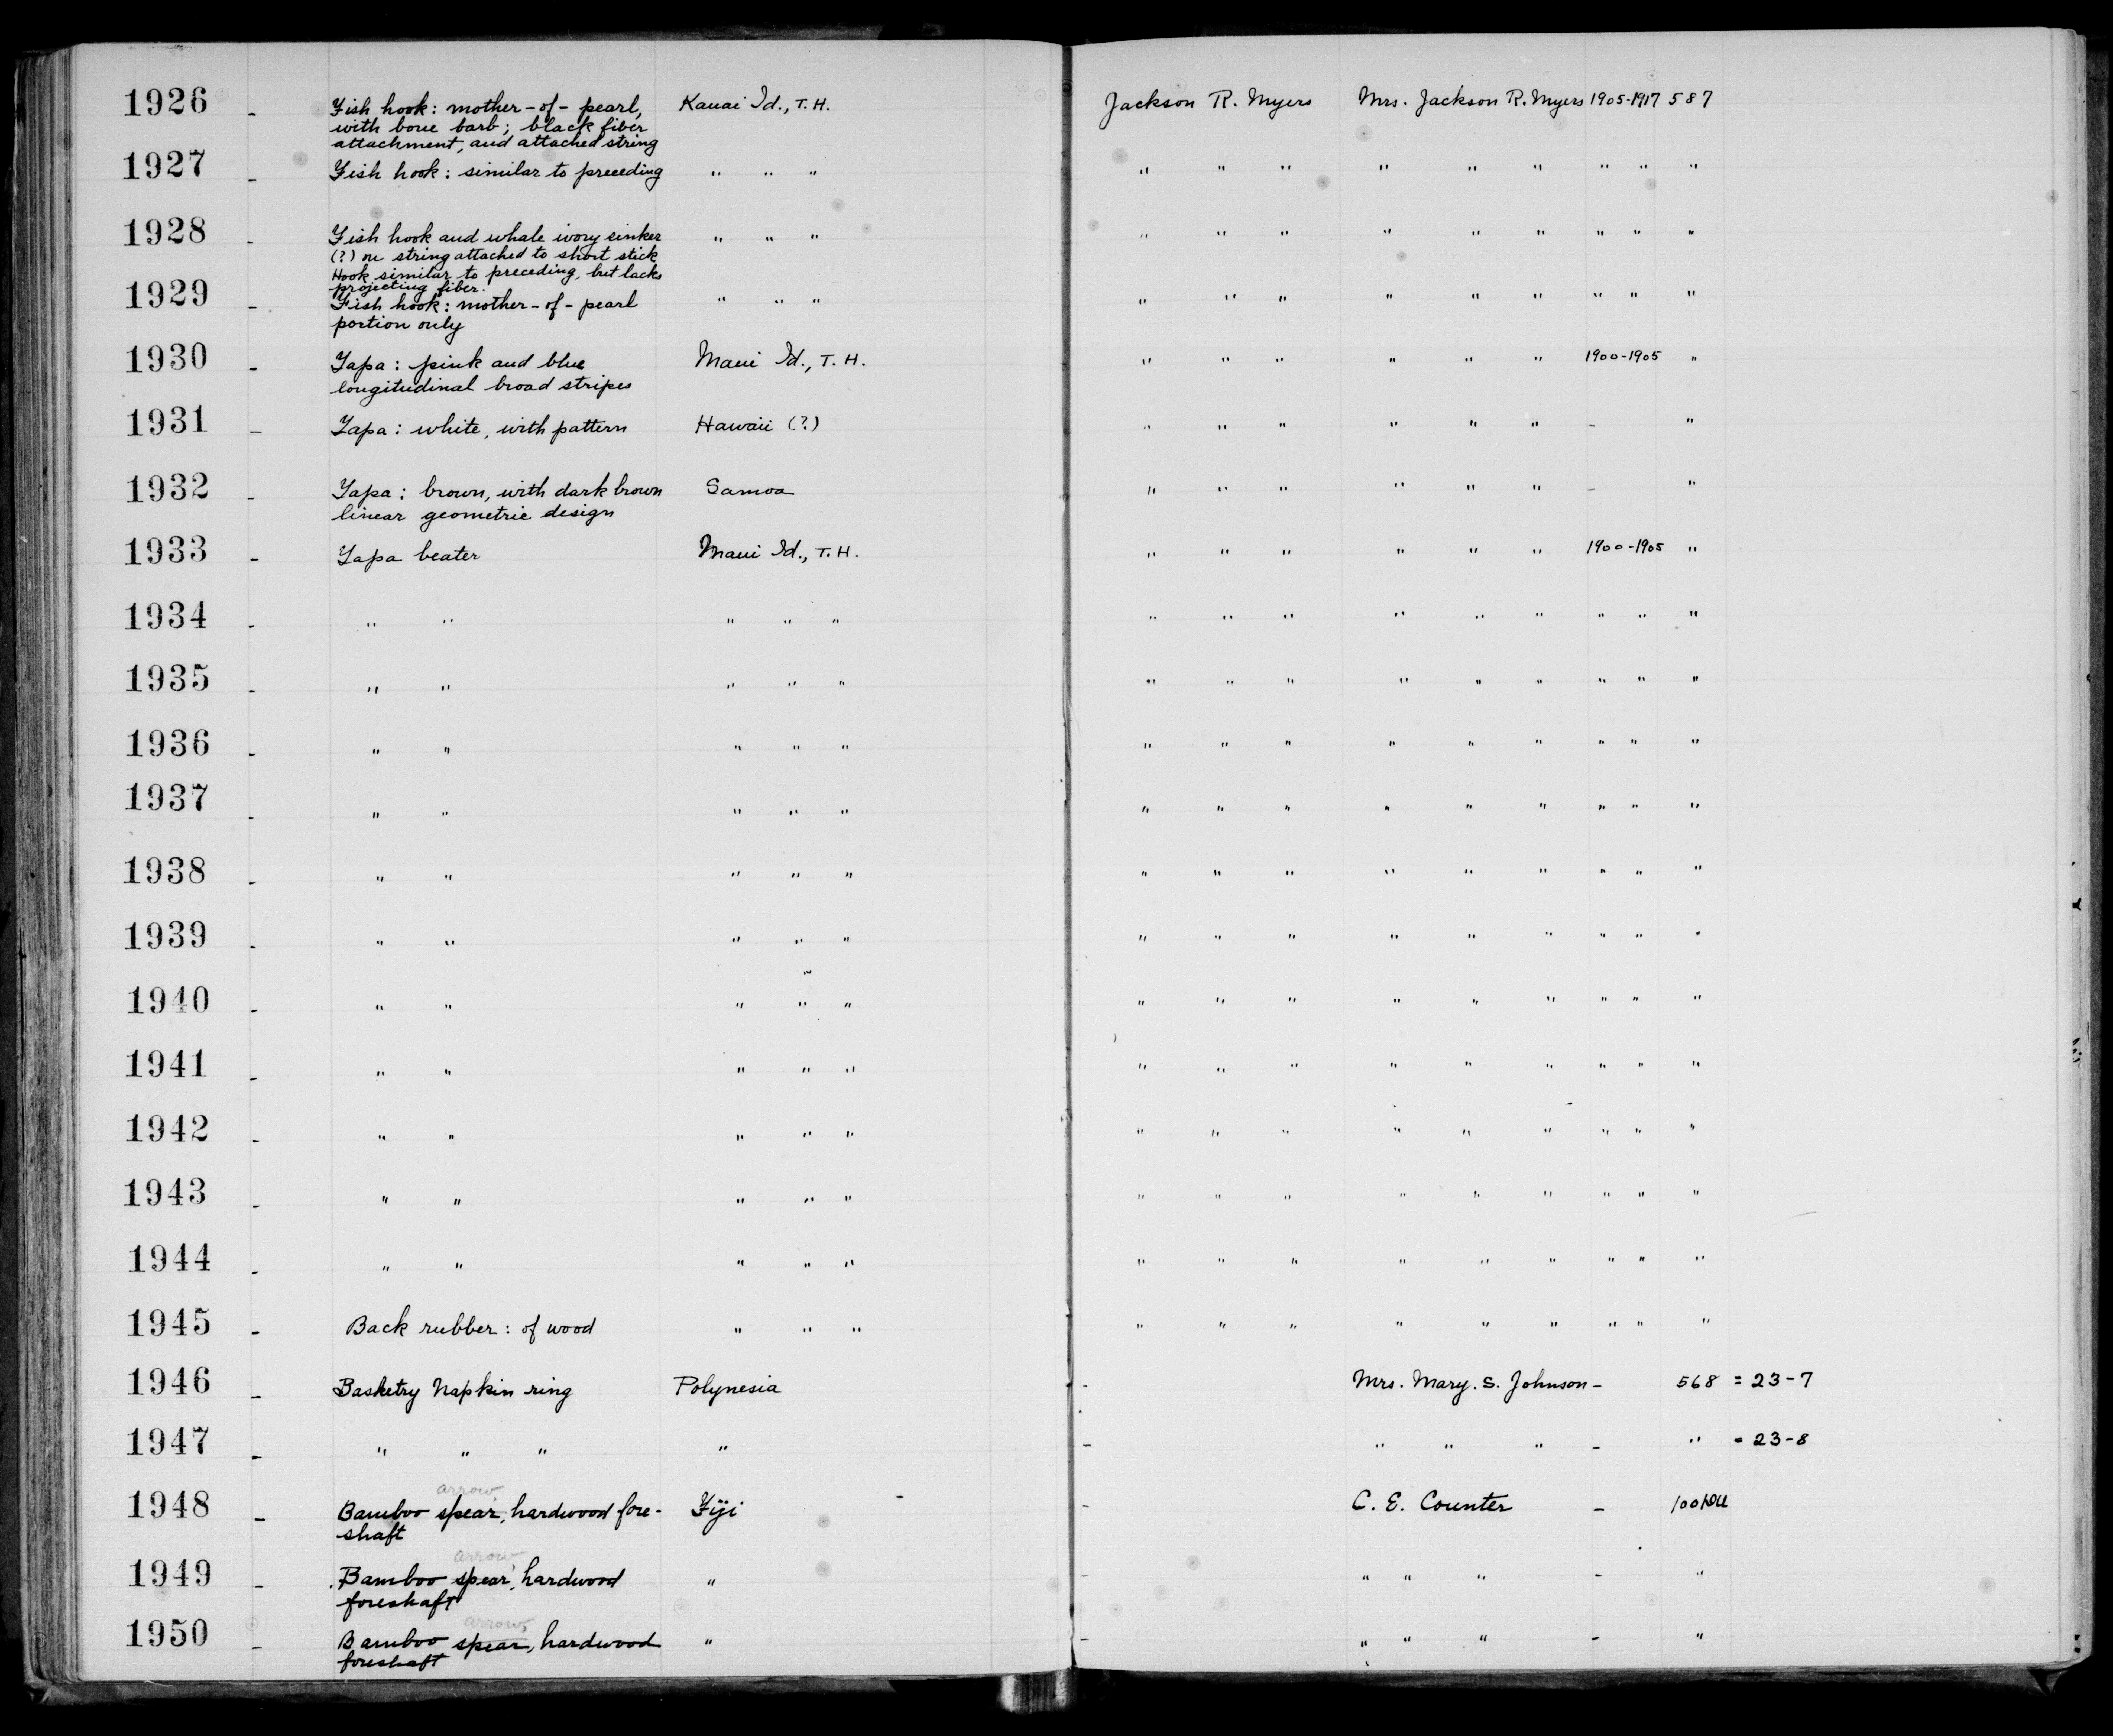 1926 - Fish hook: mother-of-pearl, Kauai Id., T.H. Jackson R. Myers Mrs. Jackson R. Myers 1905-1917 587
with bone barb; black fiber
attachment, and attached string
1927 - Fish hook: similar to preceding " " " " " " " " " " " "
1928 - Fish hook and whale ivory sinker " " " " " " " " " " " "
(?) on string attached to short stick
Hook similar to preceding, but lacks
projecting fiber.
1929 - Fish hook: mother-of-pearl " " " " " " " " " " " "
portion only
1930 - Tapa: pink and blue Maui Id., T.H. " " " " " " 1900-1905 "
longitudinal broad stripes
1931 - Tapa: white, with pattern Hawaii (?) " " " " " " - "
1932 - Tapa: brown, with dark brown Samoa " " " " " " - "
linear geometric design
1933 - Tapa beater Maui Id., T.H. " " " " " " 1900-1905 "
1934 - " " " " " " " " " " " " " "
1935 - " " " " " " " " " " " " " "
1936 - " " " " " " " " " " " " " "
1937 - " " " " " " " " " " " " " "
1938 - " " " " " " " " " " " " " "
1939 - " " " " " " " " " " " " " "
1940 - " " " " " " " " " " " " " "
1941 - " " " " " " " " " " " " " "
1942 - " " " " " " " " " " " " " "
1943 - " " " " " " " " " " " " " "
1944 - " " " " " " " " " " " " " "
1945 - Back rubber: of wood " " " " " " " " " " " "
1946 - Basketry Napkin ring Polynesia - Mrs. Mary. S. Johnson - 568 = 23-7
1947 - " " " " - " " " - " = 23-8
arrow,
1948 - Bamboo spear, hardwood fore- Fiji - C. E. Counter -
shaft
arrow,
1949 - Bamboo spear, hardwood " - " " " - "
foreshaft
arrow,
1950 - Bamboo spear, hardwood " - " " " - "
foreshaft